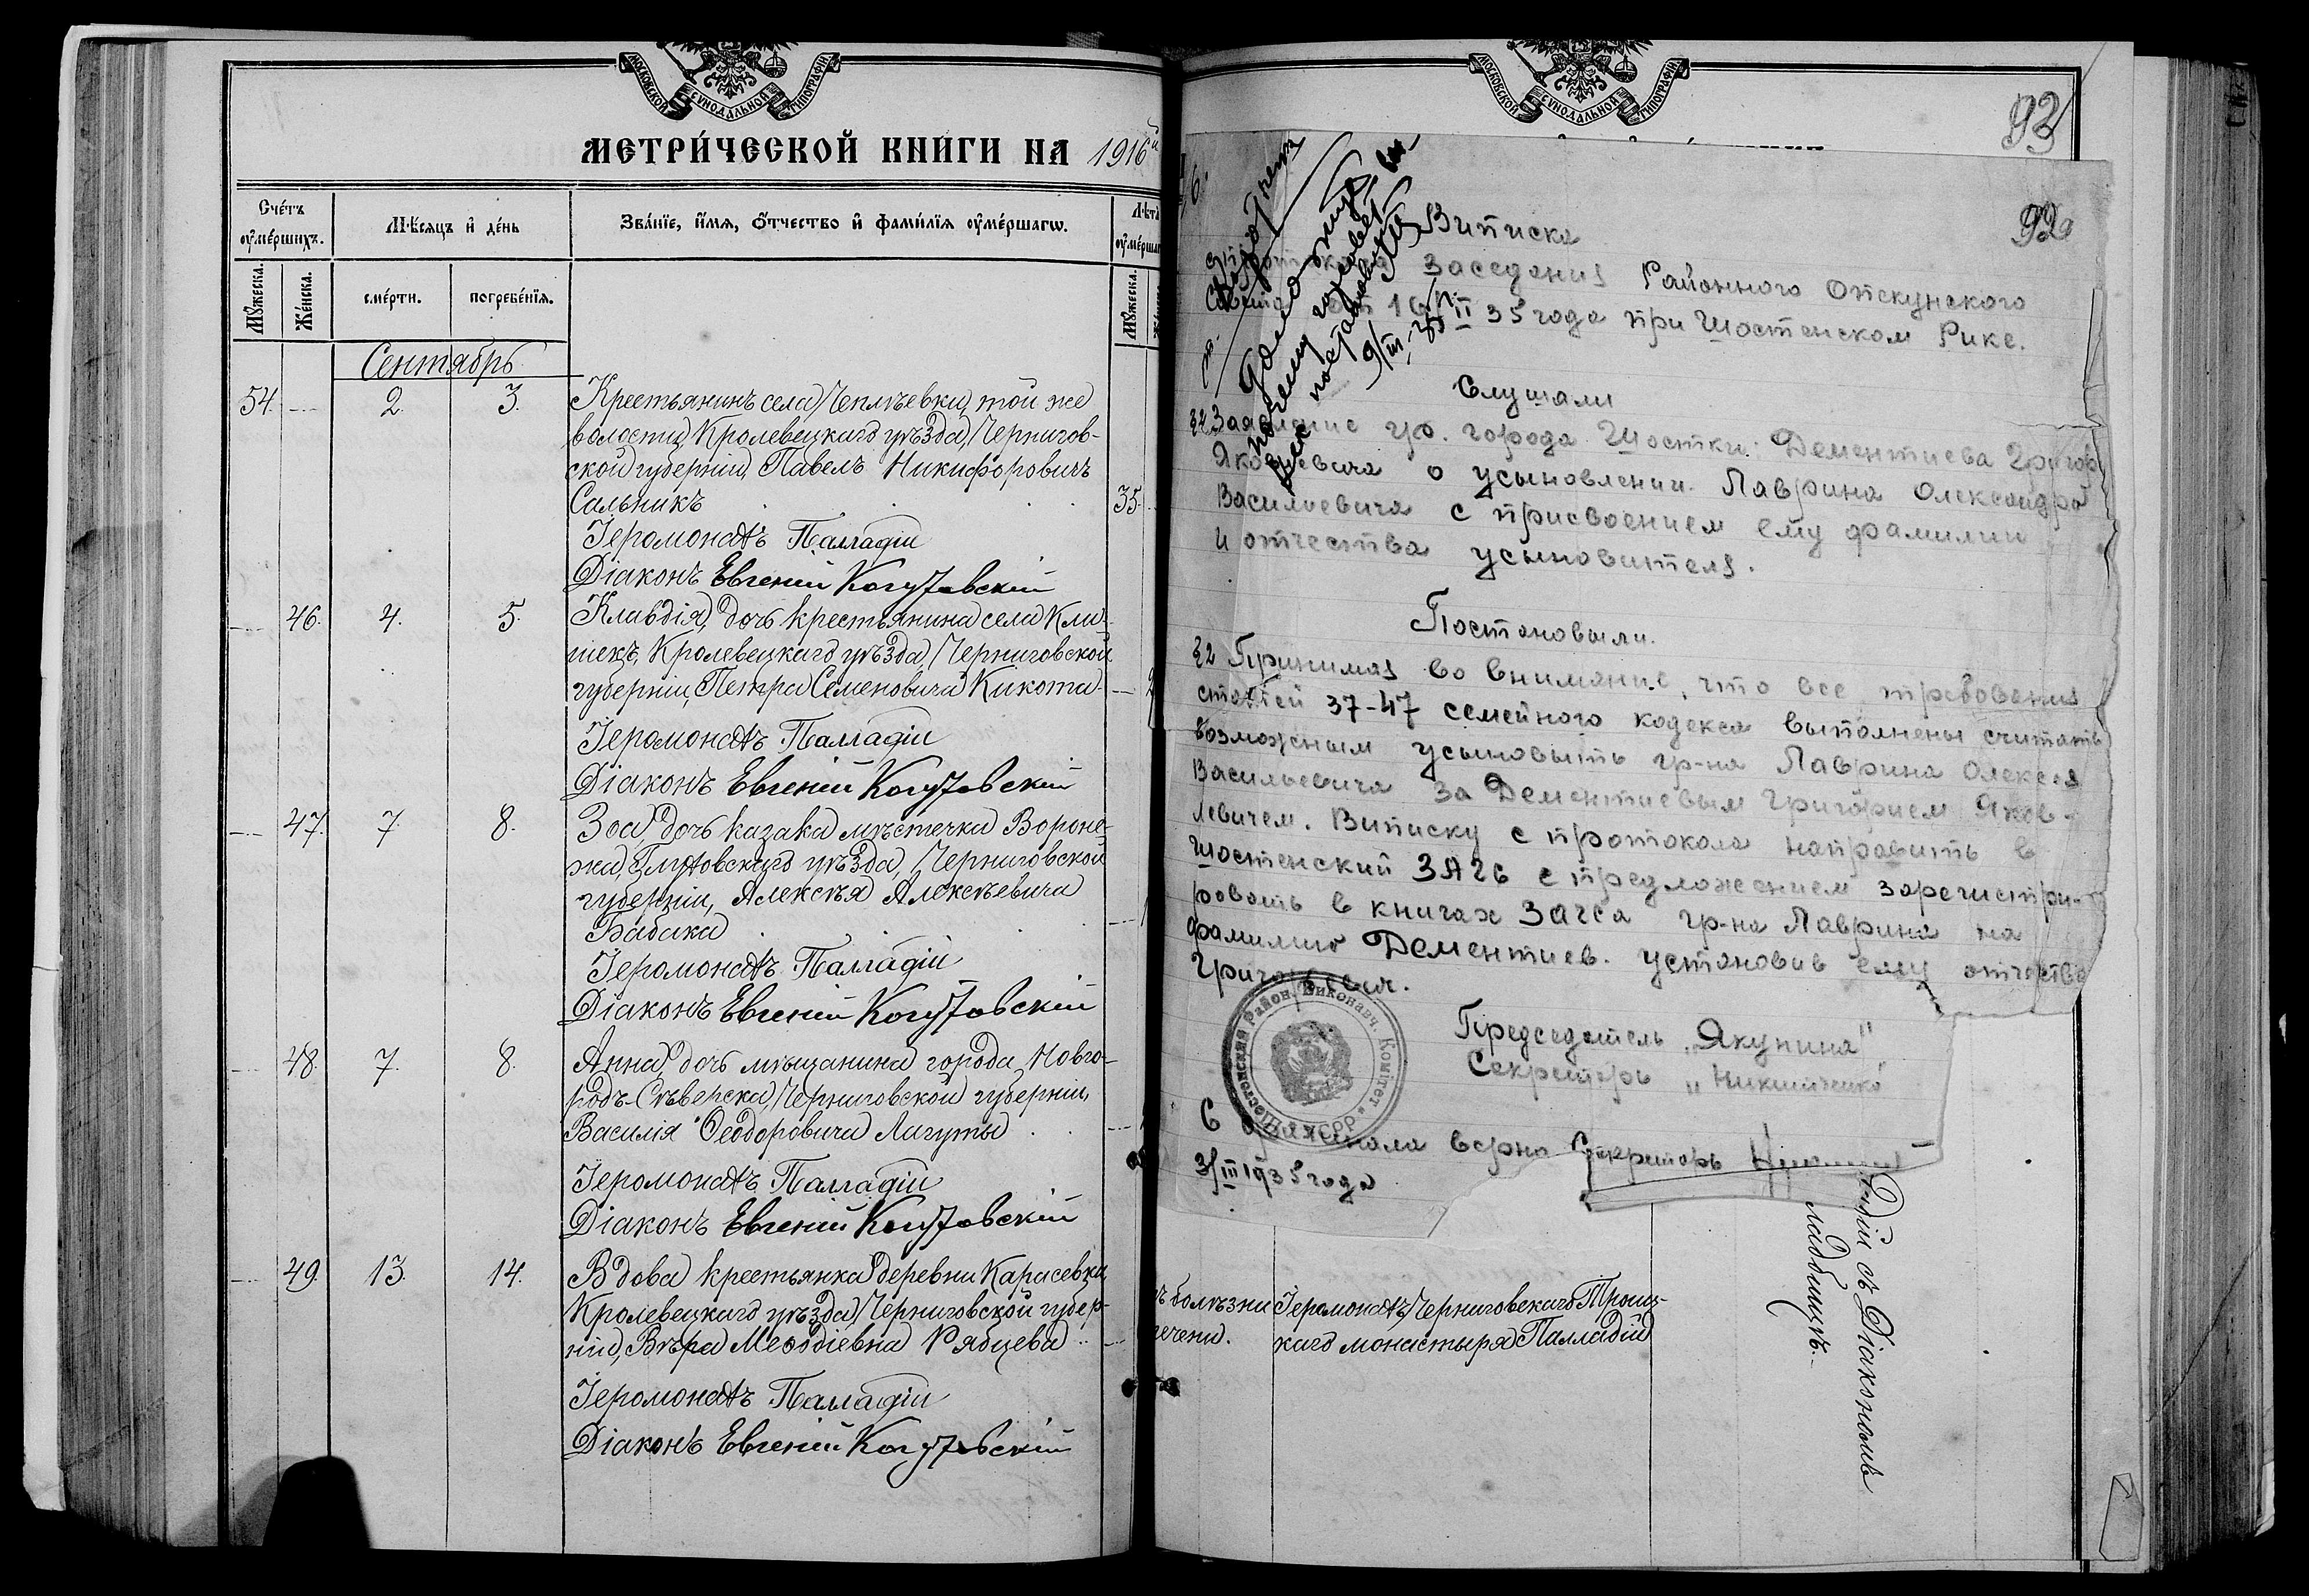 МОСКОВСКОЙ СѴНОДАЛЬНОЙ ТИПОГРАФІИ
МЕТРИ́ЧЕСКОЙ КНИ́ГИ НА 1916й
Сче́тъ оуме́ршихъ.
Мѣ́сяцъ и҆ де́нь
Зва́нїе, и҆́мя, ѻ҆́тчество и҆ фами́лїя оуме́ршагѡ.
Лѣта
оуме́ршаг
Мꙋжеска.
Же́нска.
сме́рти.
погребе́нїя.
Мꙋжеска.
Сентябрь
54. 2. 3. Крестьянинъ села Чеплѣевки, той же
волости, Кролевецкаго уѣзда, Чернигов-
ской губерніи, Павелъ Никифоровичъ
Сальникъ 35.
Іеромонахъ Палладій
Діаконъ Евгеній Когутовскій
46. 4. 5. Клавдія, дочь крестьянина села Кли-
шекъ, Кролевецкаго уѣзда, Черниговской
губерніи, Петра Семеновича Кикота
Іеромонахъ Палладій
Діаконъ Евгеній Когутовскій
47. 7. 8. Зоа, дочь казака мѣстечка Вороне-
жа, Глуховскаго уѣзда, Черниговской
губерніи, Алексѣя Алексѣевича
Бабака
Іеромонахъ Палладій
Діаконъ Евгеній Когутовскій
48. 7. 8. Анна, дочь мѣщанина города Новго-
родъ-Сѣверска, Черниговской губерніи,
Василія Ѳеодоровича Лагуты
Іеромонахъ Палладій
Діаконъ Евгеній Когутовскій
49. 13. 14. Вдова крестьянка деревни Карасевки,
Кролевецкаго уѣзда, Черниговской губер-
ніи, Вѣра Меѳодіевна Рябцева
Іеромонахъ Палладій
Діаконъ Евгеній Когутовскій
МОСКОВСКОЙ СѴНОДАЛЬНОЙ ТИПОГРАФІИ
93
92
Виписка
заседания Районного Опекунского
от 16/II 35 года при Шостенском Рике.
Слушали
§2 Заявление гр. города Шостки: Дементиева Григор
Яковлевича о усыновлении Лаврина Олександра
Василиевича с присвоением ему фамилии
и отчества усыновителя.
Постоновили.
§2 Принимая во внимание, что все требования
статтей 37-47 семейного кодекса выполнены считать
возможным усыновыть гр-на Лаврина Олексея
Васильевича за Дементиевым Григорием Яков-
левичем. Виписку с протокола направить в
Шостенский ЗАГС с предложением зарегистри-
ровать в книгах Загса гр-на Лаврина на
фамилию Дементиев. установив ему отчество
Григорьевич.
Председатель „Якунина"
Секретарь
Шостенский Район. Виконавч. Комітет
С оригиналом верно Секретарь
3/III 1935 года
ъ болѣзни Іеромонахъ Черниговскаго Троиц-
печени. каго монастыря Палладій
дій съ Діакономъ